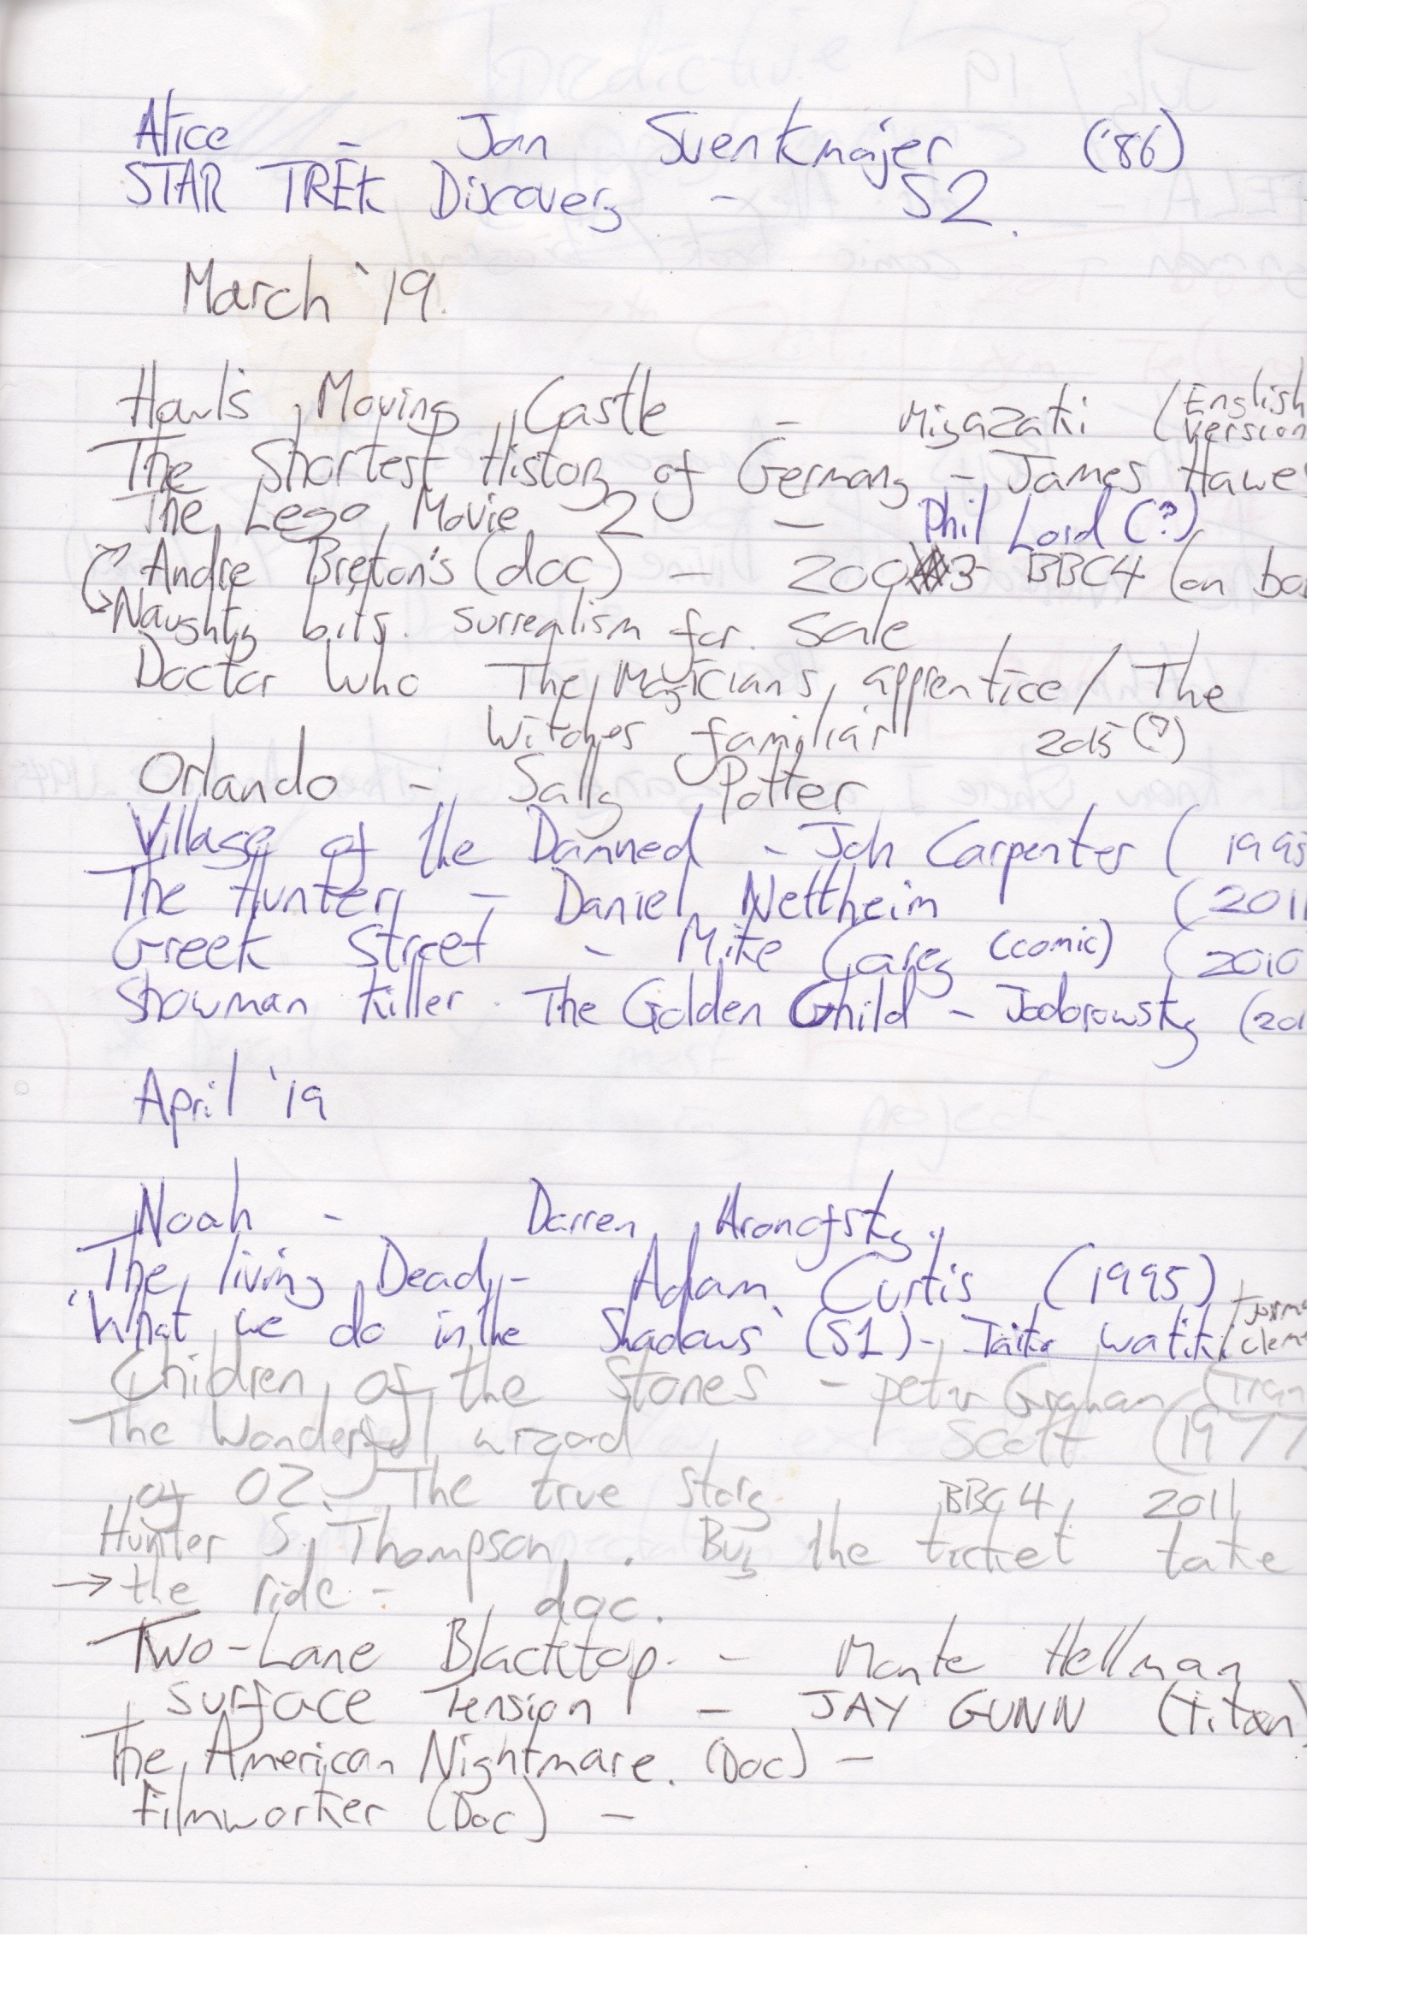 Alice - Jan Svenkmajer ('86)
STAR TREK Discovery - S2.
March '19.
Howl's Moving Castle - Miyazaki (English version
The Shortest History of Germany - James Hawe
The Lego Movie 2 - Phil Lord (?)
Andre Breton's (doc) - 2003 BBC4 (on bo
Naughty bits. surrealism for sale
Doctor Who The Magician's apprentice / The
Witches familiar 2015 (?)
Orlando - Sally Potter
Village of the Damned - Joh Carpenter (1995
The Hunter - Daniel Nettheim (2011
Greek Street - Mike Carey (comic) (2010
Showman Killer. The Golden Child - Jodorowsky (20
April '19
Noah - Darren Aronofsky.
The living Dead - Adam Curtis (1995)
"What we do in the Shadows' (S1) - Taika watiki/
Children of the Stones - peter Graham
The Wonderful wizard Scott (1977
of OZ. The true story BBC4, 2011
Hunter S. Thompson. Buy the ticket take
→ the ride - doc.
Two-Lane Blacktop. - Monte Hellman
Surface Tension - JAY GUNN (titan)
The American Nightmare. (Doc) -
Filmworker (Doc) -